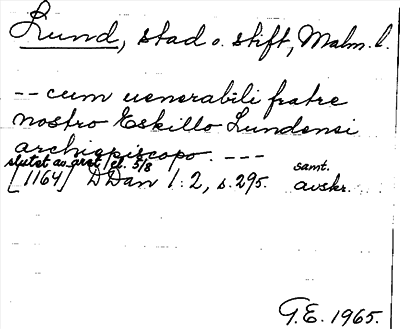 Lund, stad o. stift, Malm. l.
-- cum uenerabili fratre
nostro Eskillo Lundensi
archiepiscopo. ---
slutet av året / el. 5/8 samt.
[1164] DDan 1:2, s. 295. avskr.
G.E. 1965.